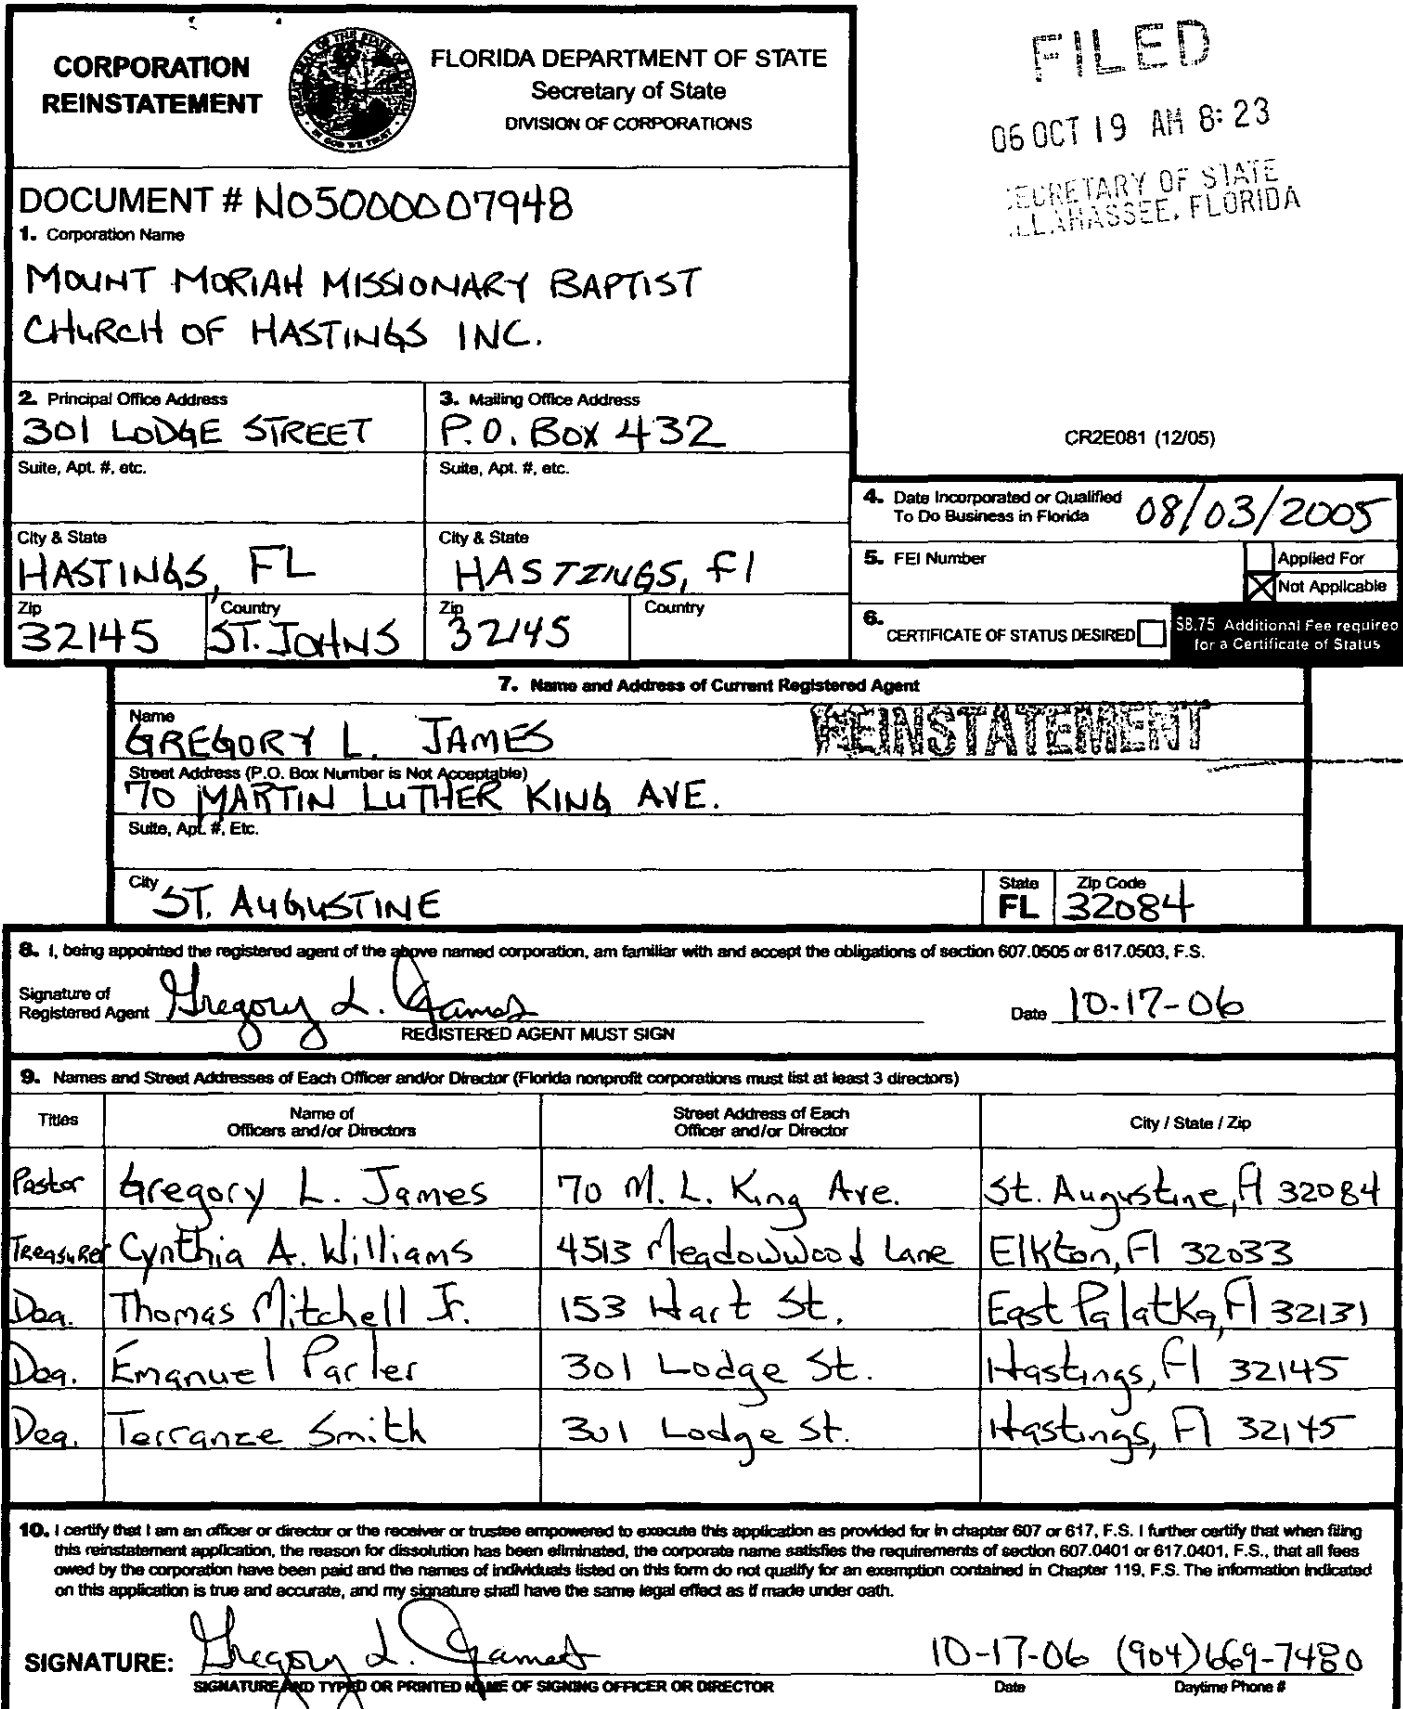 CORPORATION
REINSTATEMENT
FLORIDA DEPARTMENT OF STATE
Secretary of State
DIVISION OF CORPORATIONS
FILED
06 OCT 19 AM 8:23
SECRETARY OF STATE
TALLAHASSEE, FLORIDA
DOCUMENT # N05000007948
1. Corporation Name
MOUNT MORIAH MISSIONARY BAPTIST
CHURCH OF HASTINGS INC.
2. Principal Office Address
301 LODGE STREET
3. Mailing Office Address
P.O. BOX 432
CR2E081 (12/05)
Suite, Apt. #, etc.
Suite, Apt. #, etc.
4. Date Incorporated or Qualified
To Do Business in Florida
08/03/2005
City & State
HASTINGS, FL
City & State
HASTINGS, Fl
5. FEI Number
Applied For
Not Applicable
Zip
32145
Country
ST. JOHNS
Zip
32145
Country
6. CERTIFICATE OF STATUS DESIRED
$8.75 Additional Fee required
for a Certificate of Status
7. Name and Address of Current Registered Agent
Name
GREGORY L. JAMES
REINSTATEMENT
Street Address (P.O. Box Number is Not Acceptable)
70 MARTIN LUTHER KING AVE.
Suite, Apt. #, Etc.
City
ST. AUGUSTINE
State
FL
Zip Code
32084
8. I, being appointed the registered agent of the above named corporation, am familiar with and accept the obligations of section 607.0505 or 617.0503, F.S.
Signature of
Registered Agent Gregory L. James
Date 10-17-06
REGISTERED AGENT MUST SIGN
9. Names and Street Addresses of Each Officer and/or Director (Florida nonprofit corporations must list at least 3 directors)
Titles
Name of
Officers and/or Directors
Street Address of Each
Officer and/or Director
City / State / Zip
Pastor Gregory L. James 70 M. L. King Ave. St. Augustine, Fl 32084
Treasurer Cynthia A. Williams 4513 Meadowwood Lane Elkton, Fl 32033
Dea. Thomas Mitchell Jr. 153 Hart St. East Palatka, Fl 32131
Dea. Emanuel Parler 301 Lodge St. Hastings, Fl 32145
Dea. Terranze Smith 301 Lodge St. Hastings, Fl 32145
10. I certify that I am an officer or director or the receiver or trustee empowered to execute this application as provided for in chapter 607 or 617, F.S. I further certify that when filing
this reinstatement application, the reason for dissolution has been eliminated, the corporate name satisfies the requirements of section 607.0401 or 617.0401, F.S., that all fees
owed by the corporation have been paid and the names of individuals listed on this form do not qualify for an exemption contained in Chapter 119, F.S. The information indicated
on this application is true and accurate, and my signature shall have the same legal effect as if made under oath.
SIGNATURE: Gregory L. James 10-17-06 (904)669-7480
SIGNATURE AND TYPED OR PRINTED NAME OF SIGNING OFFICER OR DIRECTOR
Date
Daytime Phone #